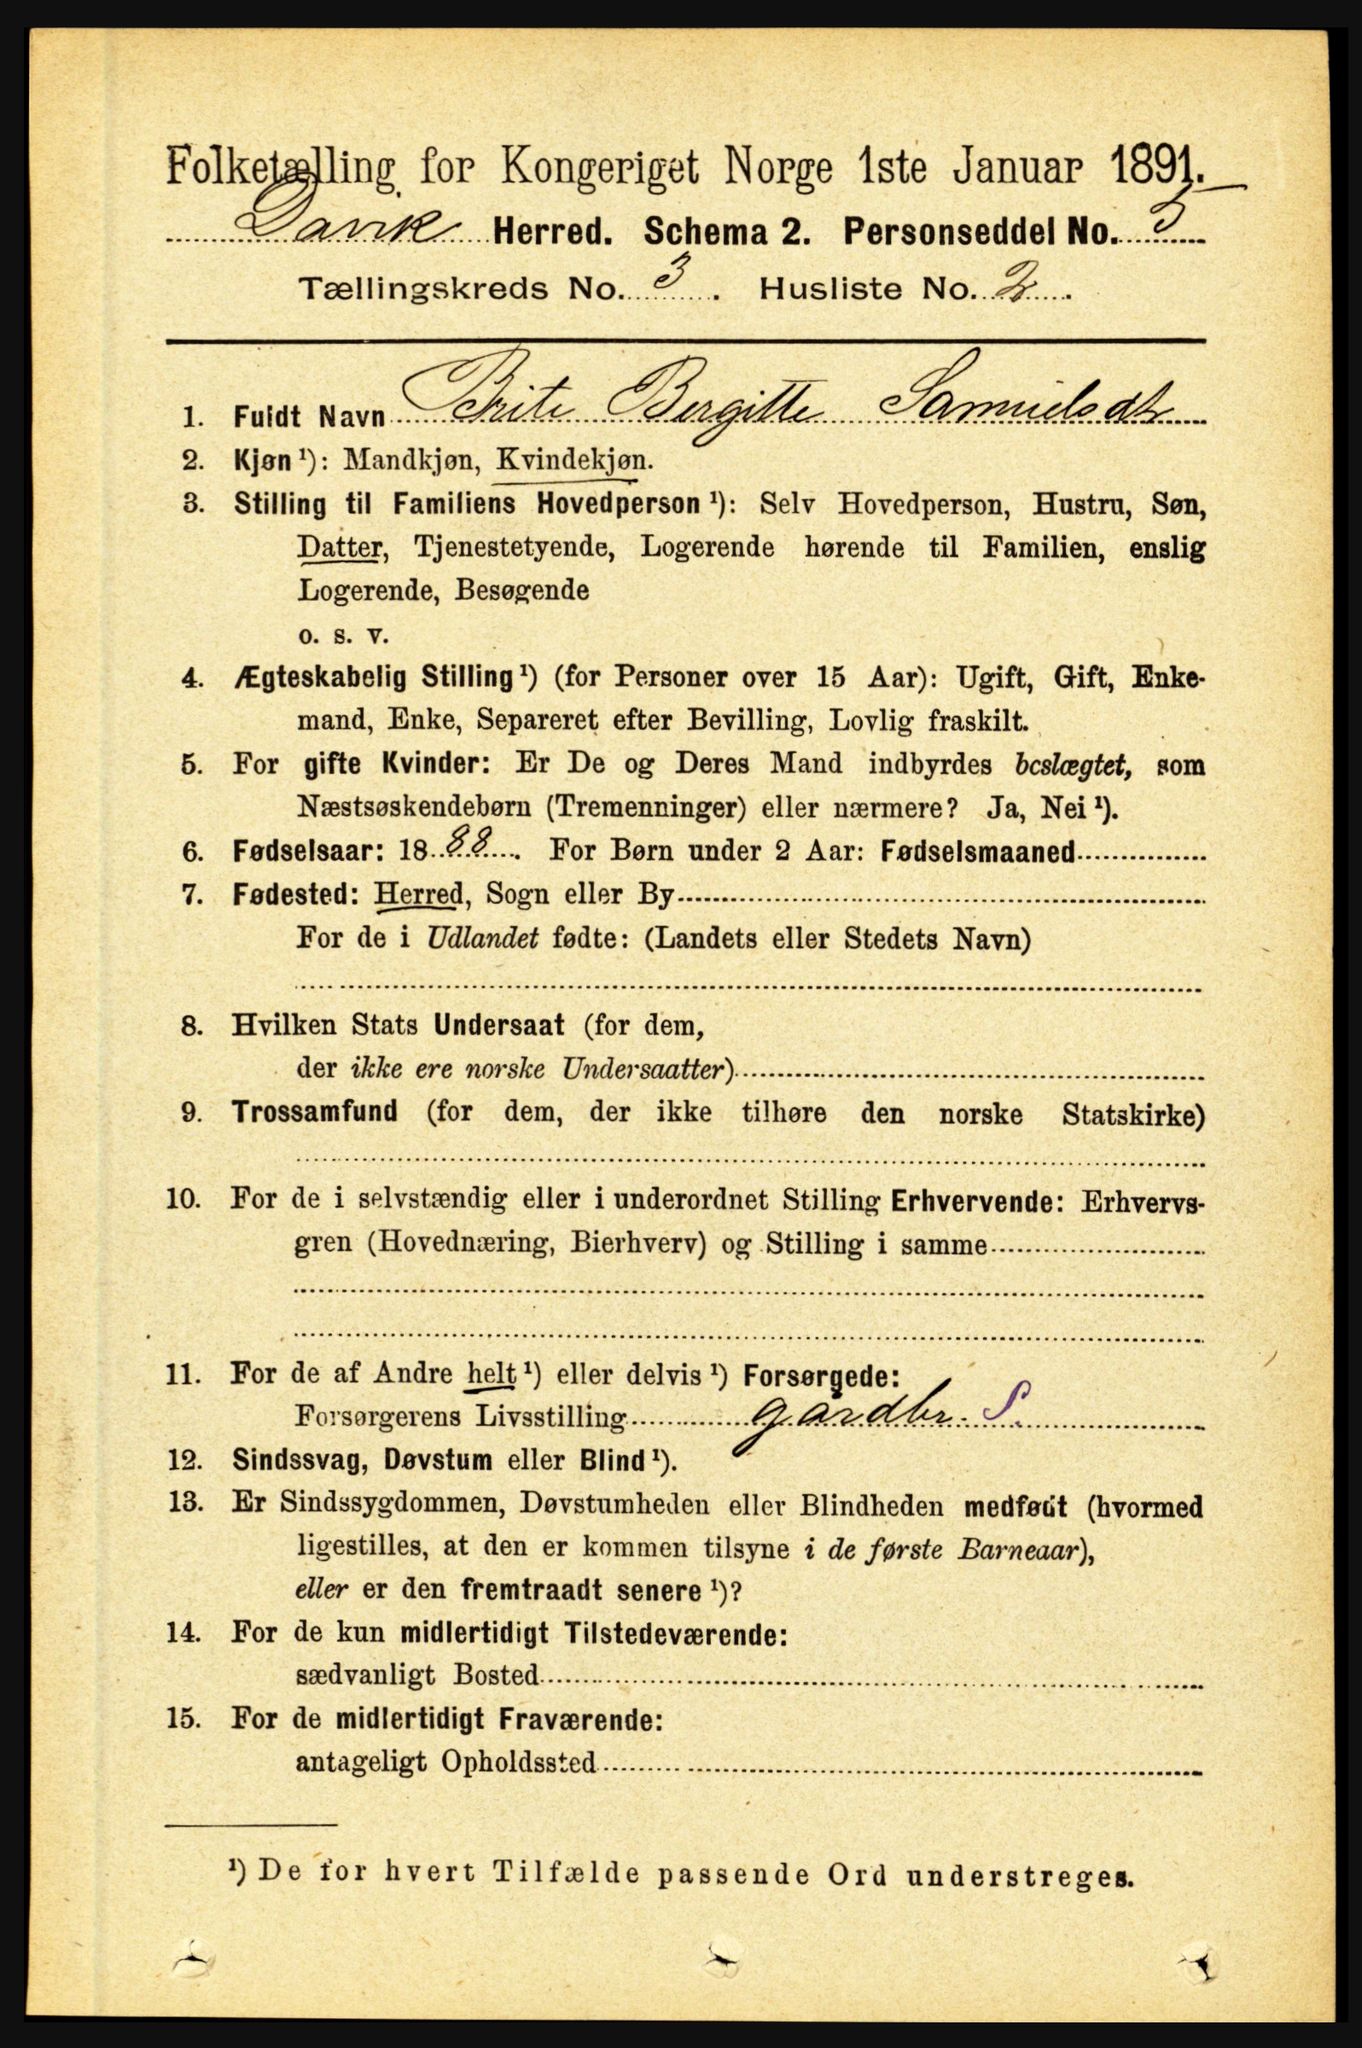 Folketælling for Kongeriget Norge 1ste Januar 1891.
Davik Herred. Schema 2. Personseddel No. 5
Tællingskreds No. 3. Husliste No. 2.
1. Fuldt Navn Brite Bergitte Samuelsdtr
2. Kjøn ¹): Mandkjøn, Kvindekjøn.
3. Stilling til Familiens Hovedperson ¹): Selv Hovedperson, Hustru, Søn,
Datter, Tjenestetyende, Logerende hørende til Familien, enslig
Logerende, Besøgende
o. s. v.
4. Ægteskabelig Stilling ¹) (for Personer over 15 Aar): Ugift, Gift, Enke-
mand, Enke, Separeret efter Bevilling, Lovlig fraskilt.
5. For gifte Kvinder: Er De og Deres Mand indbyrdes beslægtet, som
Næstsøskendebørn (Tremenninger) eller nærmere? Ja, Nei ¹).
6. Fødselsaar: 1888. For Børn under 2 Aar: Fødselsmaaned
7. Fødested: Herred, Sogn eller By
For de i Udlandet fødte: (Landets eller Stedets Navn)
8. Hvilken Stats Undersaat (for dem,
der ikke ere norske Undersaatter)
9. Trossamfund (for dem, der ikke tilhøre den norske Statskirke)
10. For de i selvstændig eller i underordnet Stilling Erhvervende: Erhvervs-
gren (Hovednæring, Bierhverv) og Stilling i samme
11. For de af Andre helt ¹) eller delvis ¹) Forsørgede:
Forsørgerens Livsstilling gårdbr. S.
12. Sindssvag, Døvstum eller Blind ¹).
13. Er Sindssygdommen, Døvstumheden eller Blindheden medfødt (hvormed
ligestilles, at den er kommen tilsyne i de første Barneaar),
eller er den fremtraadt senere ¹)?
14. For de kun midlertidigt Tilstedeværende:
sædvanligt Bosted
15. For de midlertidigt Fraværende:
antageligt Opholdssted
¹) De for hvert Tilfælde passende Ord understreges.